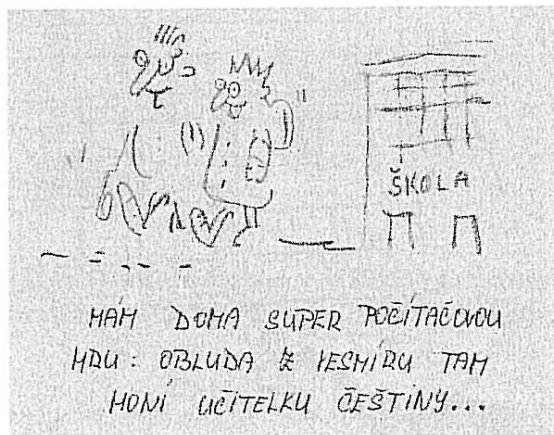 ŠKOLA
MÁM DOMA SUPER POČÍTAČOVOU
HRU: OBLUDA Z VESMÍRU TAM
HONÍ UČITELKU ČEŠTINY...